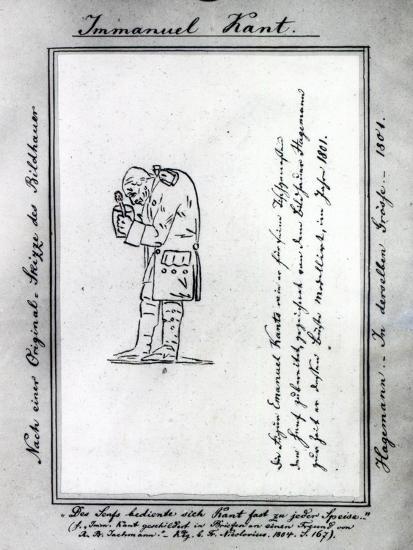 Immanuel Kant.
Nach einer Original-Skizze des Bildhauer
Die Figur Emanuel Kants wie er für seine Tischgenossen
den Senf zubereitet, gezeichnet von dem Bildhauer Hagemann
zur Zeit er dessen Büste modellirte, im Jahre 1801.
Hagemann. — In derselben Grösse. — 1801.
„Des Senfs bediente sich Kant fast zu jeder Speise.“
(s. „Imm. Kant geschildert in Briefen an einen Freund von
R. B. Jachmann.“ — Kbg. b. Fr. Nicolovius. 1804. S. 167).